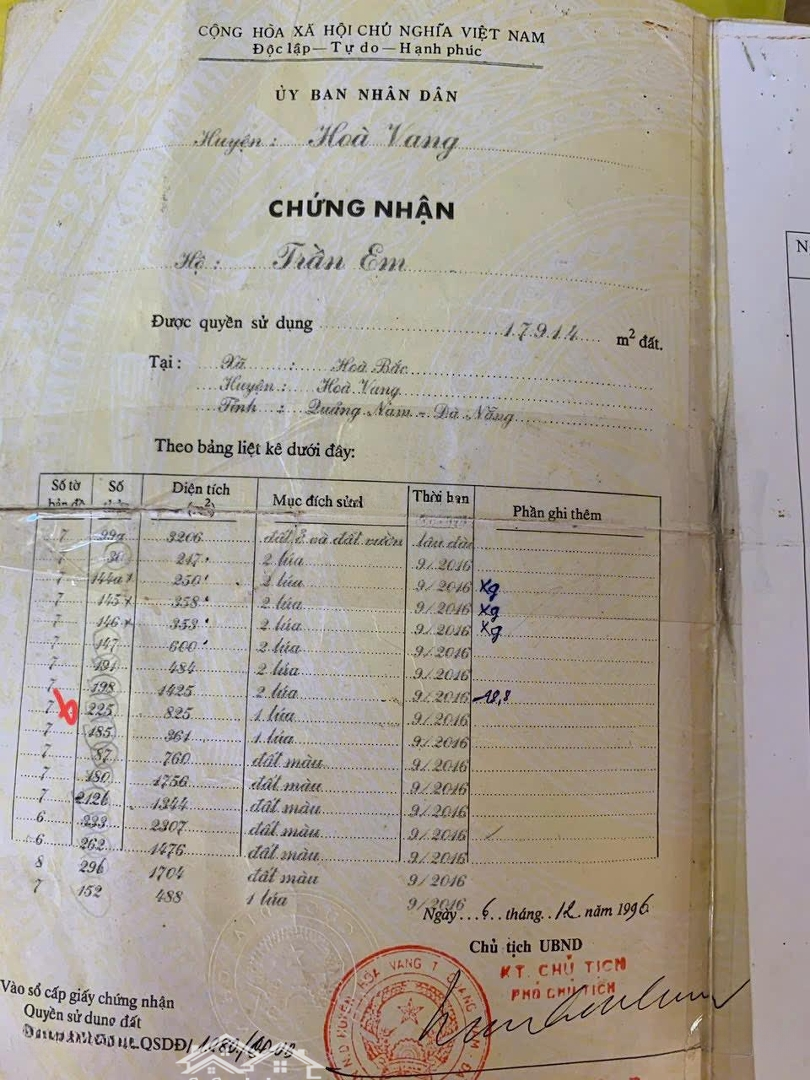 CỘNG HÒA XÃ HỘI CHỦ NGHĨA VIỆT NAM
Độc lập — Tự do — Hạnh phúc
ỦY BAN NHÂN DÂN
Huyện: Hoà Vang
CHỨNG NHẬN
Hộ: Trần Em
Được quyền sử dụng 17914 m² đất.
Tại: Xã : Hoà Bắc
Huyện: Hoà Vang
Tỉnh : Quảng Nam - Đà Nẵng
Theo bảng liệt kê dưới đây:
Số tờ Số Diện tích Mục đích sử Thời hạn Phần ghi thêm
(m²)
7 99a 3206 đất ở và đất vườn lâu dài
7 30 217 2 lúa 9/2016
7 144a x 250 2 lúa 9/2016 Xg
7 145 x 358 2 lúa 9/2016 Xg
7 146 x 353 2 lúa 9/2016 Xg
7 147 600 2 lúa 9/2016
7 191 484 2 lúa 9/2016
7 198 1425 2 lúa 9/2016
7 225 825 1 lúa 9/2016
7 185 361 1 lúa 9/2016
7 87 760 đất màu 9/2016
7 180 1756 đất màu 9/2016
7 212b 1344 đất màu 9/2016
6 333 2307 đất màu 9/2016
6 262 1476 đất màu 9/2016
8 296 1704 đất màu 9/2016
7 152 488 1 lúa 9/2016
Ngày 6 tháng 12 năm 1996
Chủ tịch UBND
KT. CHỦ TỊCH
PHÓ CHỦ TỊCH
Vào sổ cấp giấy chứng nhận
Quyền sử dụng đất
QSDĐ/
N